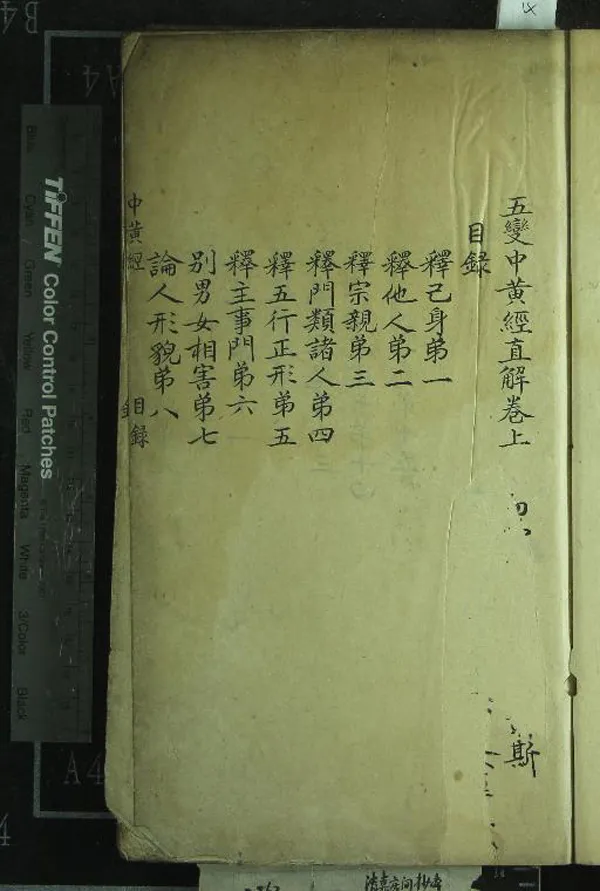 五變中黃經直解卷上
目錄
釋己身弟一
釋他人弟二
釋宗親弟三
釋門類諸人弟四
釋五行正形弟五
釋主事門弟六
別男女相害弟七
論人形貌弟八
中黃經 目錄
斯
TIFFEN Color Control Patches
Blue
Cyan
Green
Yellow
Red
Magenta
White
3/Color
Black
B4
A4
A4